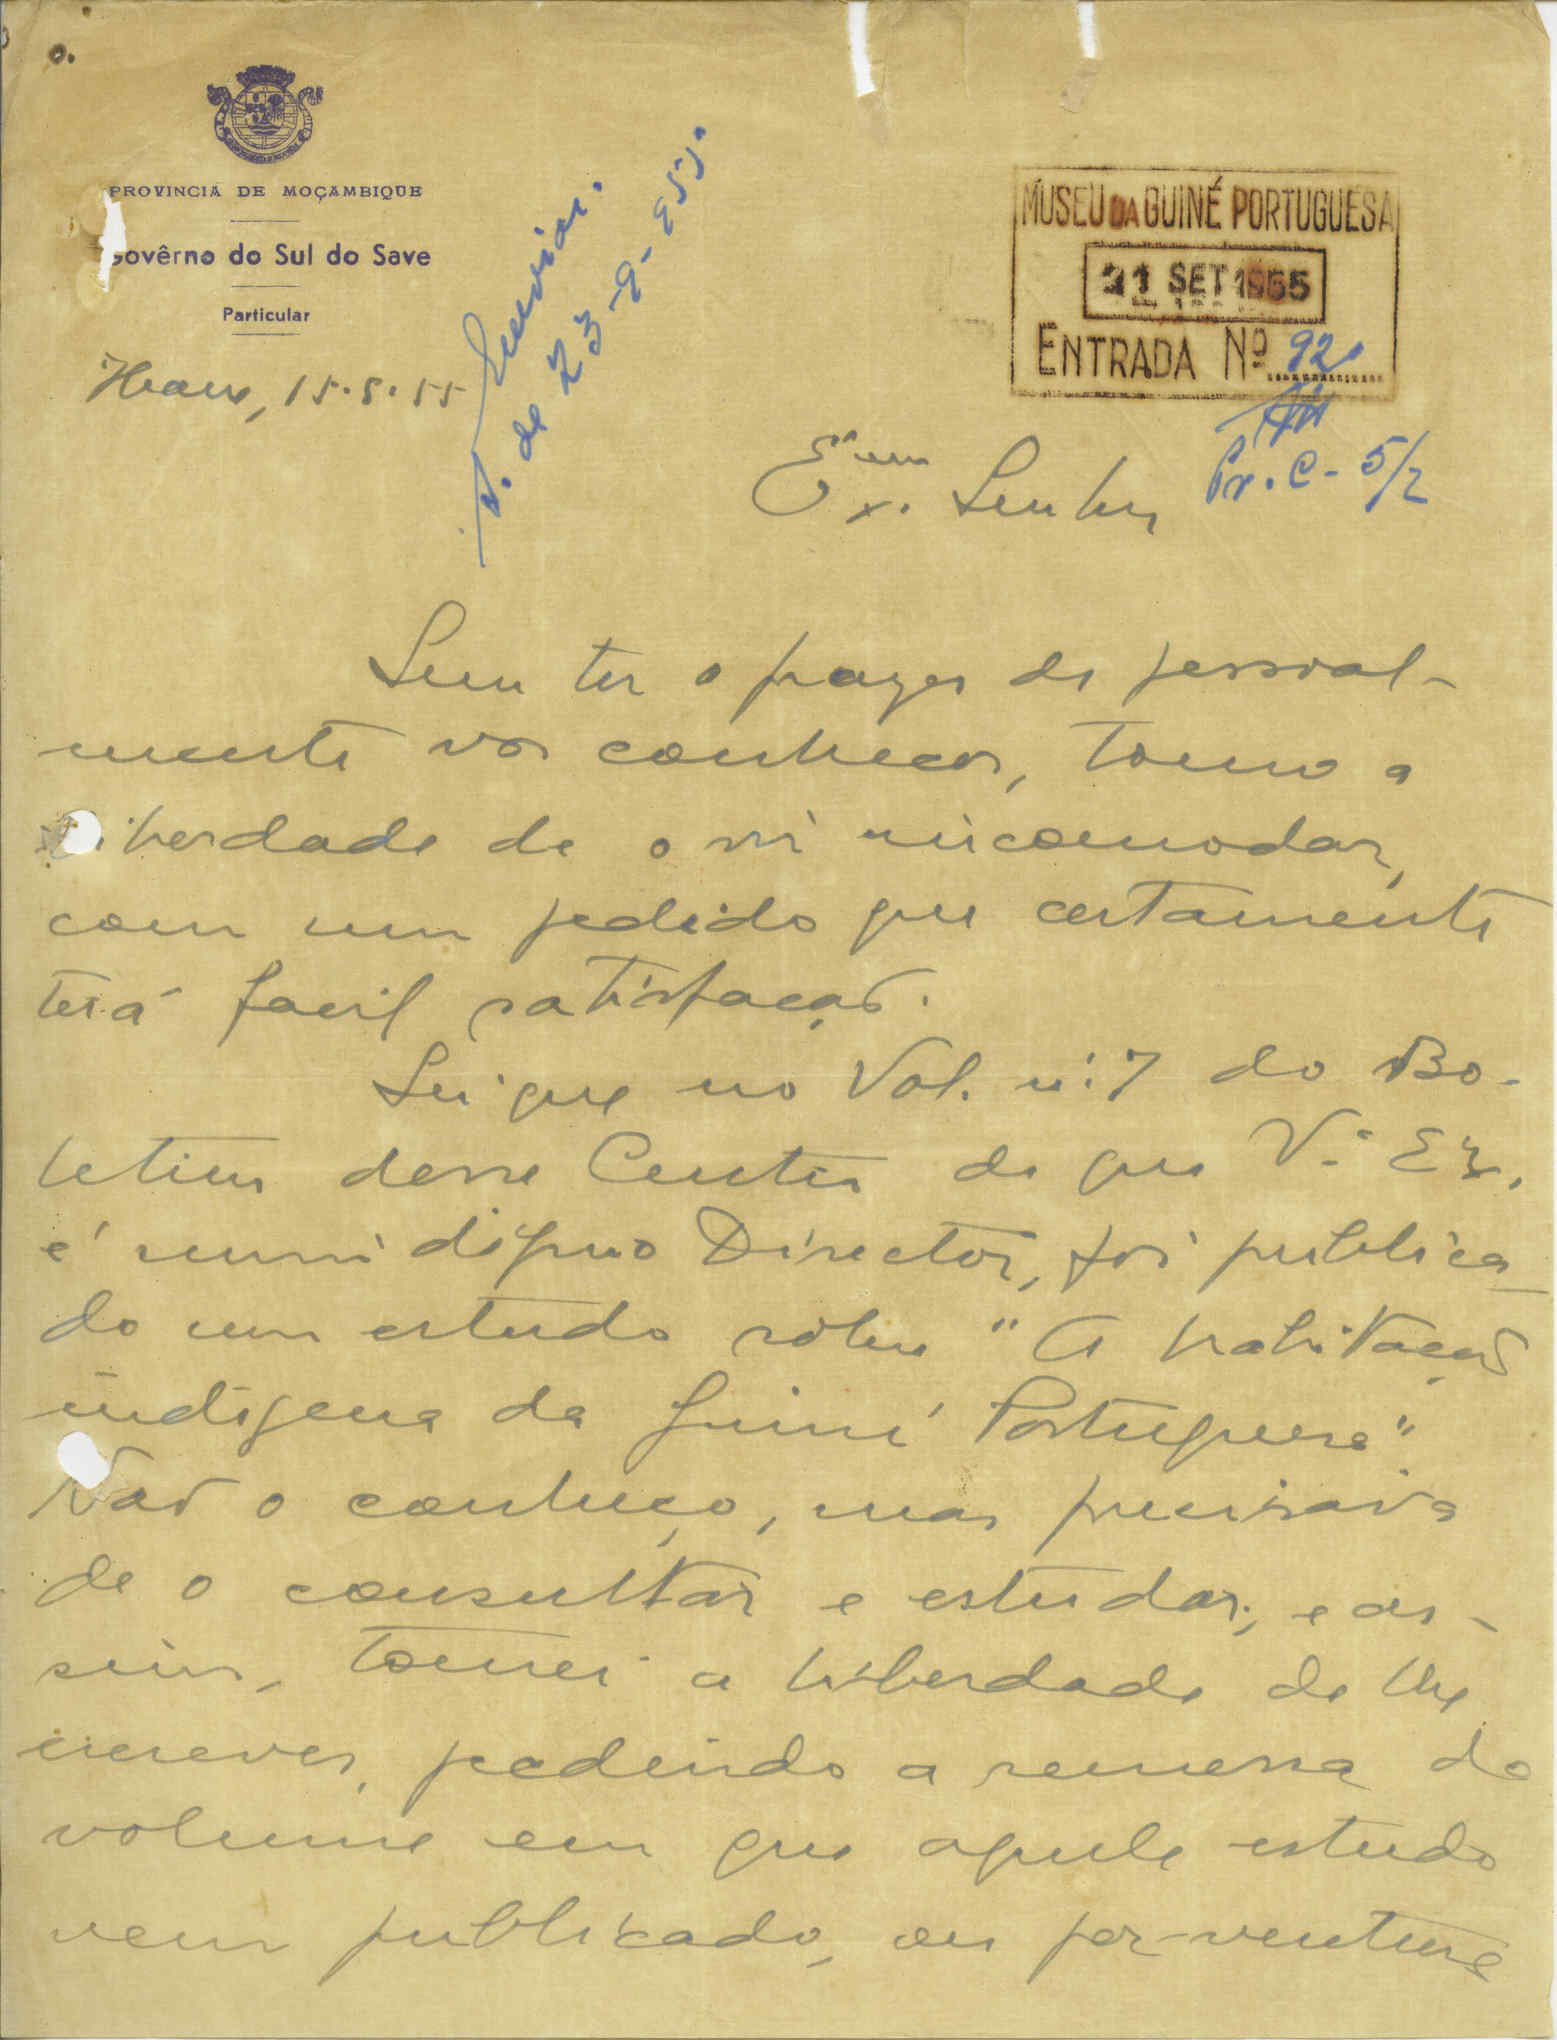 PROVINCIA DE MOÇAMBIQUE
Govêrno do Sul do Save
Particular
15.8.55
Enviar.
23-9-955.
MUSEU DA GUINÉ PORTUGUESA
21 SET 1955
ENTRADA Nº 920
Pr. C- 5/2
Ex.mo Senhor
Sem ter o prazer de pessoal-
mente vos conhecer, tomo a
liberdade de o vir incomodar,
com um pedido que certamente
terá facil satisfação.
Sei que no Vol. nº 7 do Bo-
letim desse Centro de que V.ª Ex.
é mui digno Director, foi publica-
do um estudo sôbre "A habitação
indígena da Guiné Portuguesa".
Não o conheço, mas precisava
de o consultar e estudar, e as-
sim, tomei a liberdade de lhe
escrever, pedindo a remessa do
volume em que aquele estudo
vem publicado, ou por-ventura